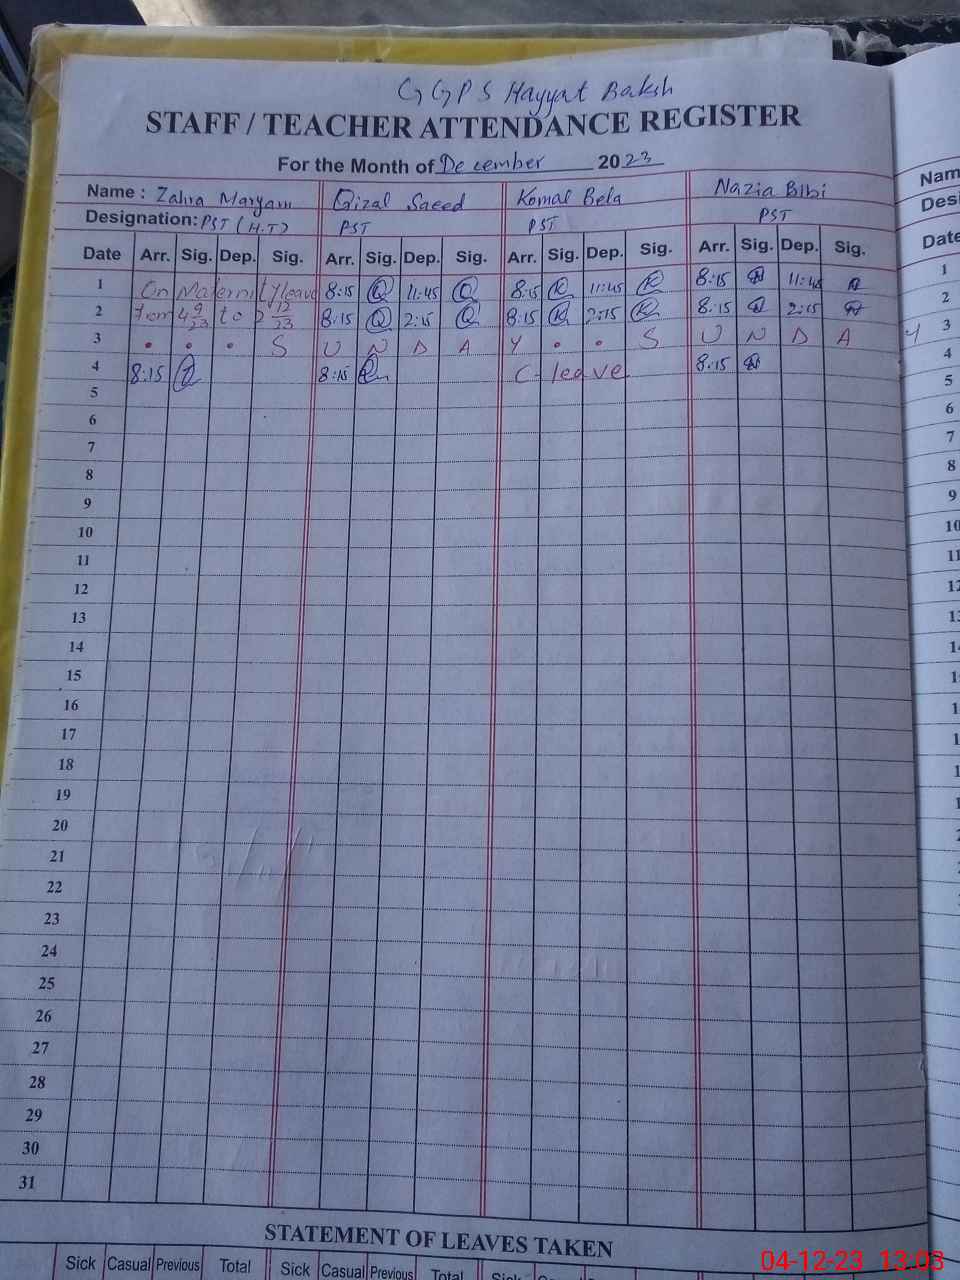 GGPS Hayyat Baksh
STAFF / TEACHER ATTENDANCE REGISTER
For the Month of December 2023
Name : Zahra Maryam Qizal Saeed Komal Bela Nazia Bibi
Designation: PST (H.T) PST PST PST
Date Arr. Sig. Dep. Sig. Arr. Sig. Dep. Sig. Arr. Sig. Dep. Sig. Arr. Sig. Dep. Sig.
1 On Maternity leave 8:15 Q 11:45 Q 8:15 K 11:45 K 8:15 11:45
2 from 4 9/23 to 2 12/23 8:15 Q 2:15 Q 8:15 K 2:15 K 8:15 2:15
3 . . . S U N D A Y . . S U N D A Y
4 8:15 8:15 C-leave 8:15
5
6
7
8
9
10
11
12
13
14
15
16
17
18
19
20
21
22
23
24
25
26
27
28
29
30
31
STATEMENT OF LEAVES TAKEN
Sick Casual Previous Total Sick Casual Previous Total Sick
Nam
Desi
Date
1
2
3
4
5
6
7
8
9
10
11
12
04-12-23 13:03